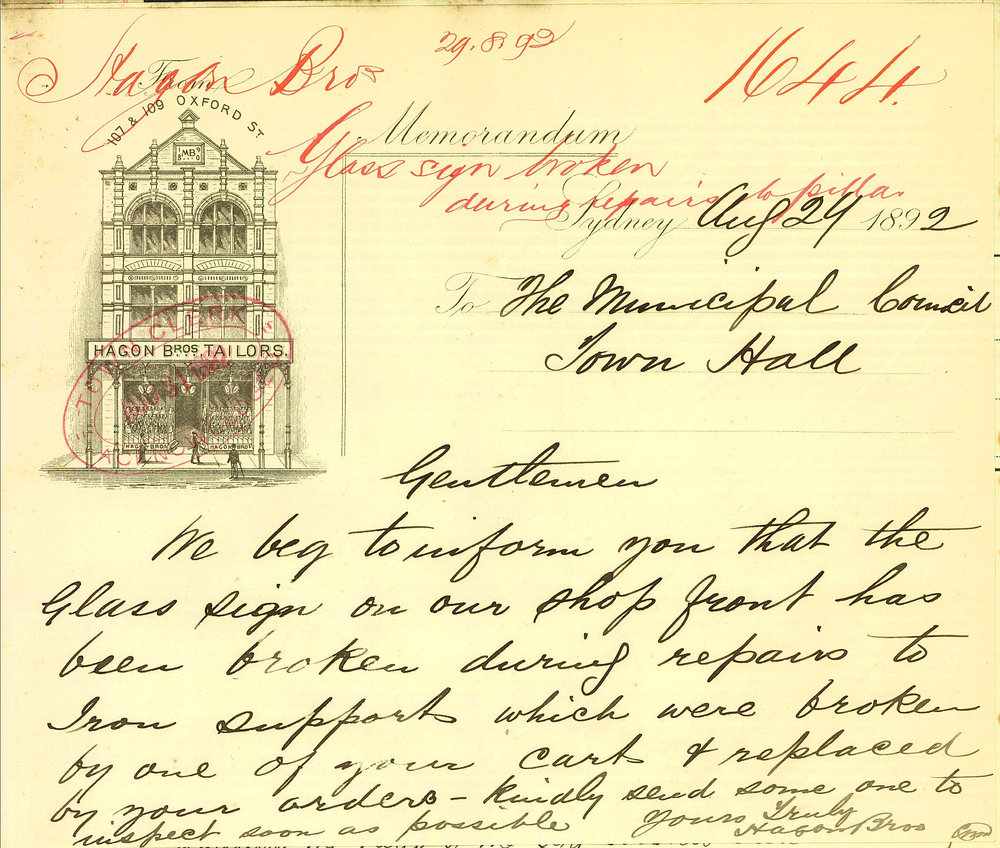 29.8.92
Hagon Bros
1644.
From
107 & 109 OXFORD ST
Memorandum
Glass sign broken
during repairs to pillar
1 MB 9
8 0
Sydney Aug 29 1892
To The Municipal Council
Town Hall
TOWN CLERK
AUG 31 1892
HAGON BROS TAILORS.
HAGON BROS HAGON BROS
Gentlemen
We beg to inform you that the
Glass sign on our shop front has
been broken during repairs to
Iron supports which were broken
by one of your carts & replaced
by your orders – kindly send some one to
inspect soon as possible Yours Truly
Hagon Bros